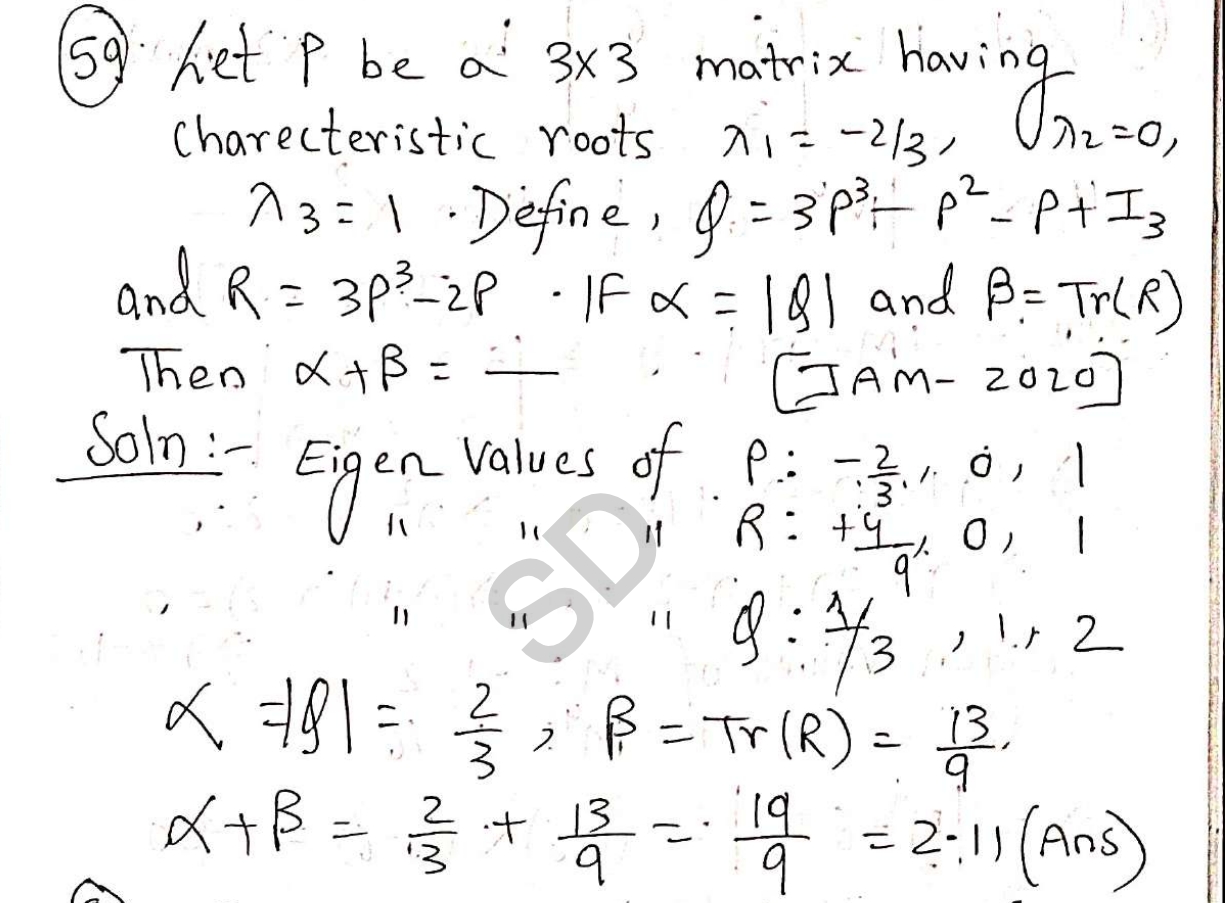 59. Let P be a 3x3 matrix having
Charecteristic roots λ1 = -2/3, λ2=0,
λ3 = 1 . Define, Q = 3P³ - P² - P + I3
and R = 3P³-2P . IF α = |Q| and β = Tr(R)
Then α+β = — [JAM- 2020]
Soln :- Eigen Values of P: -2/3, 0, 1
" " " R: +4/9, 0, 1
" " " Q: 1/3, 1, 2
α = |Q| = 2/3, β = Tr(R) = 13/9.
α+β = 2/3 + 13/9 = 19/9 = 2.11 (Ans)
SD